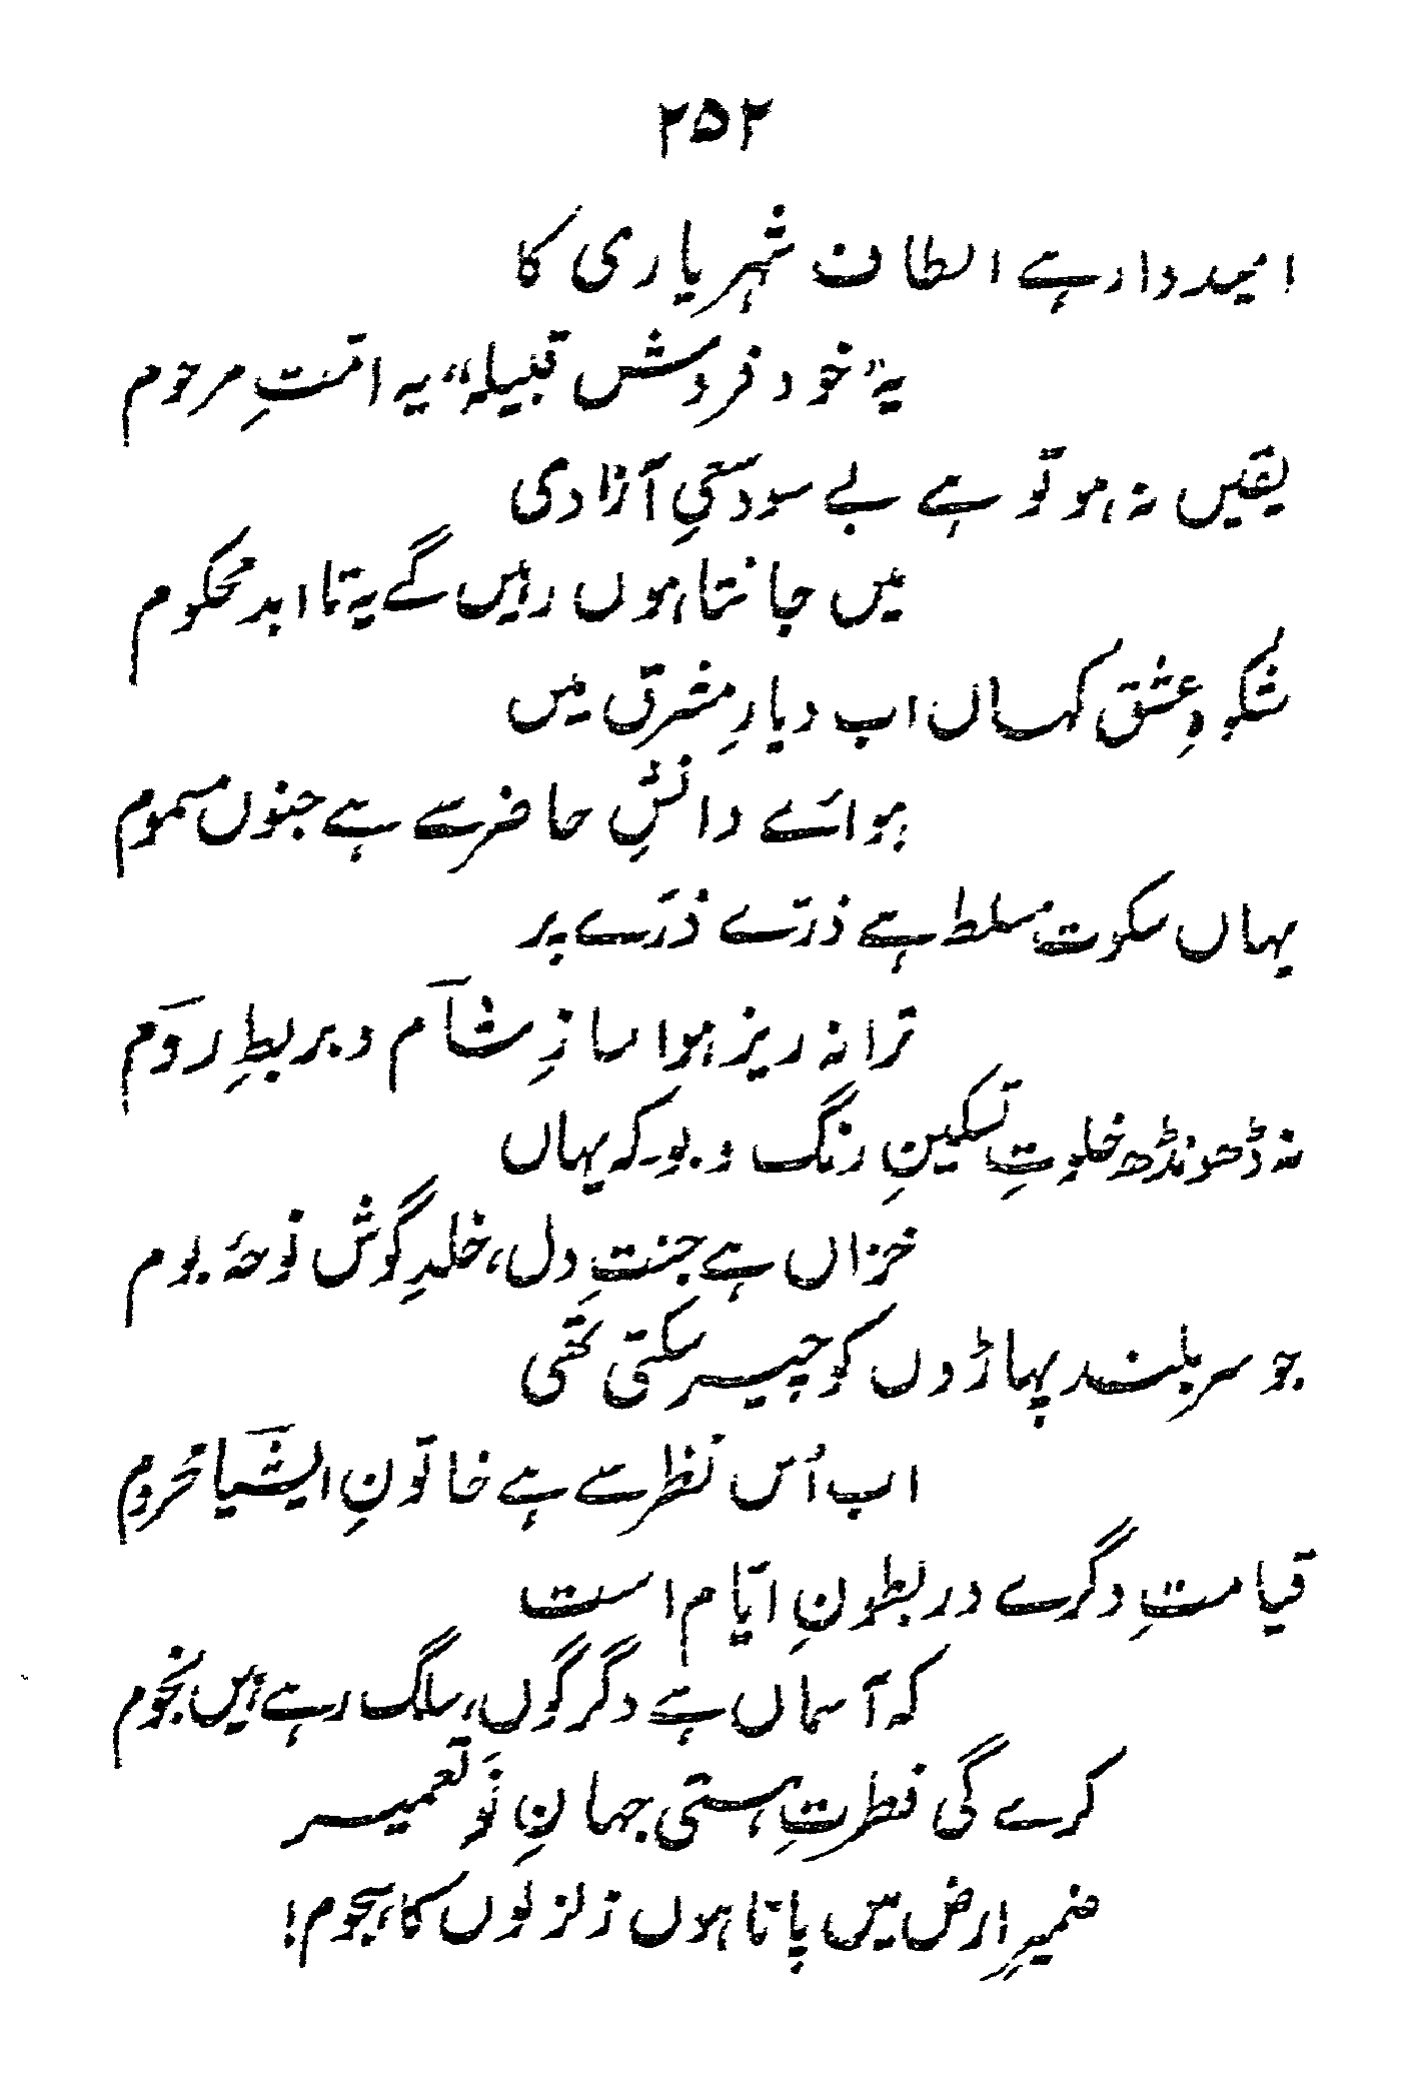 ۲۵۲
امیدوار ہے الطاف شہریاری کا
یہ "خود فروش قبیلہ" یہ امّتِ مرحوم
یقیں نہ ہو تو ہے بے سود سعیِ آزادی
میں جانتا ہوں رہیں گے یہ تا ابد محکوم
شکوہِ عشق کہاں اب دیارِ مشرق میں
ہوائے دانشِ حاضر سے ہے جنوں مسموم
یہاں سکوت مسلط ہے ذرّے ذرّے پر
ترانہ ریز ہوا سازِ شام و بربطِ روم
نہ ڈھونڈھ خلوتِ تسکینِ رنگ و بو۔ کہ یہاں
خزاں ہے جنتِ دل، خلدِ گوش نوحۂ بوم
جو سر بلند پہاڑوں کو چیر سکتی تھی
اب اُس نظر سے ہے خاتونِ ایشیا محروم
قیامتِ دگرے در بطونِ ایّام است
کہ آسماں ہے دگرگوں، سلگ رہے ہیں نجوم
کرے گی فطرتِ ہستی جہانِ نَو تعمیر
ضمیرِ ارض میں پاتا ہوں زلزلوں کا ہجوم!